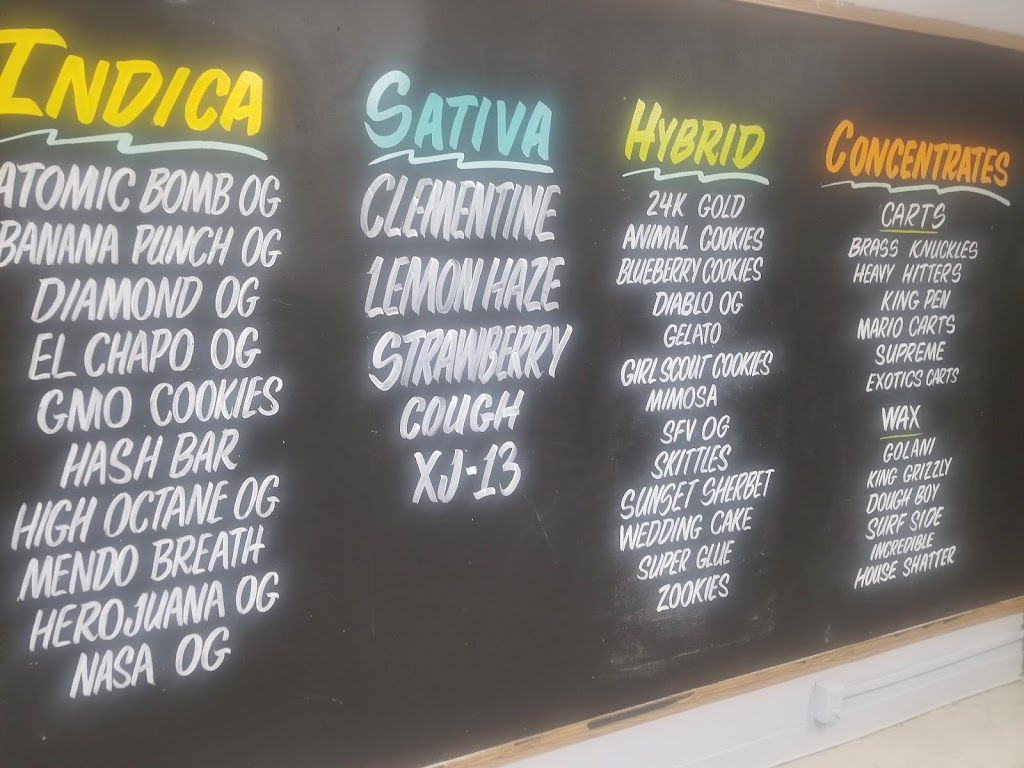 INDICA
ATOMIC BOMB OG
BANANA PUNCH OG
DIAMOND OG
EL CHAPO OG
GMO COOKIES
HASH BAR
HIGH OCTANE OG
MENDO BREATH
HEROJUANA OG
NASA OG
SATIVA
CLEMENTINE
LEMON HAZE
STRAWBERRY
COUGH
XJ-13
HYBRID
24K GOLD
ANIMAL COOKIES
BLUEBERRY COOKIES
DIABLO OG
GELATO
GIRL SCOUT COOKIES
MIMOSA
SFV OG
SKITTLES
SUNSET SHERBET
WEDDING CAKE
SUPER GLUE
ZOOKIES
CONCENTRATES
CARTS
BRASS KNUCKLES
HEAVY HITTERS
KING PEN
MARIO CARTS
SUPREME
EXOTICS CARTS
WAX
GOLANI
KING GRIZZLY
DOUGH BOY
SURF SIDE
INCREDIBLE
HOUSE SHATTER